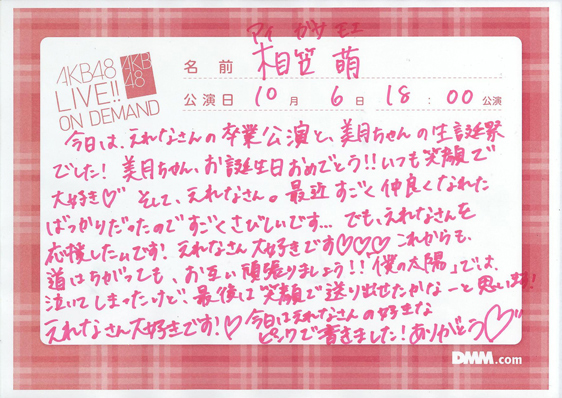 アイ ガサ モエ
AKB48
LIVE!!
ON DEMAND
AKB
48
名前 相笠 萌
公演日 10月 6日 18:00公演
今日は、えれなさんの卒業公演と、美月ちゃんの生誕祭
でした! 美月ちゃん、お誕生日おめでとう!!いつも笑顔で
大好き♡ そして、えれなさん。最近すごく仲良くなれた
ばっかりだったのですごくさびしいです... でも、えれなさんを
応援したいです! えれなさん大好きです♡♡♡ これからも、
道はちがっても、お互い頑張りましょう!!「僕の太陽」では、
泣いてしまったけど、最後は笑顔で送り出せたかなーと思います!
えれなさん大好きです!♡ 今日はえれなさんの好きな
ピンクで書きました!ありがとう♡
DMM.com